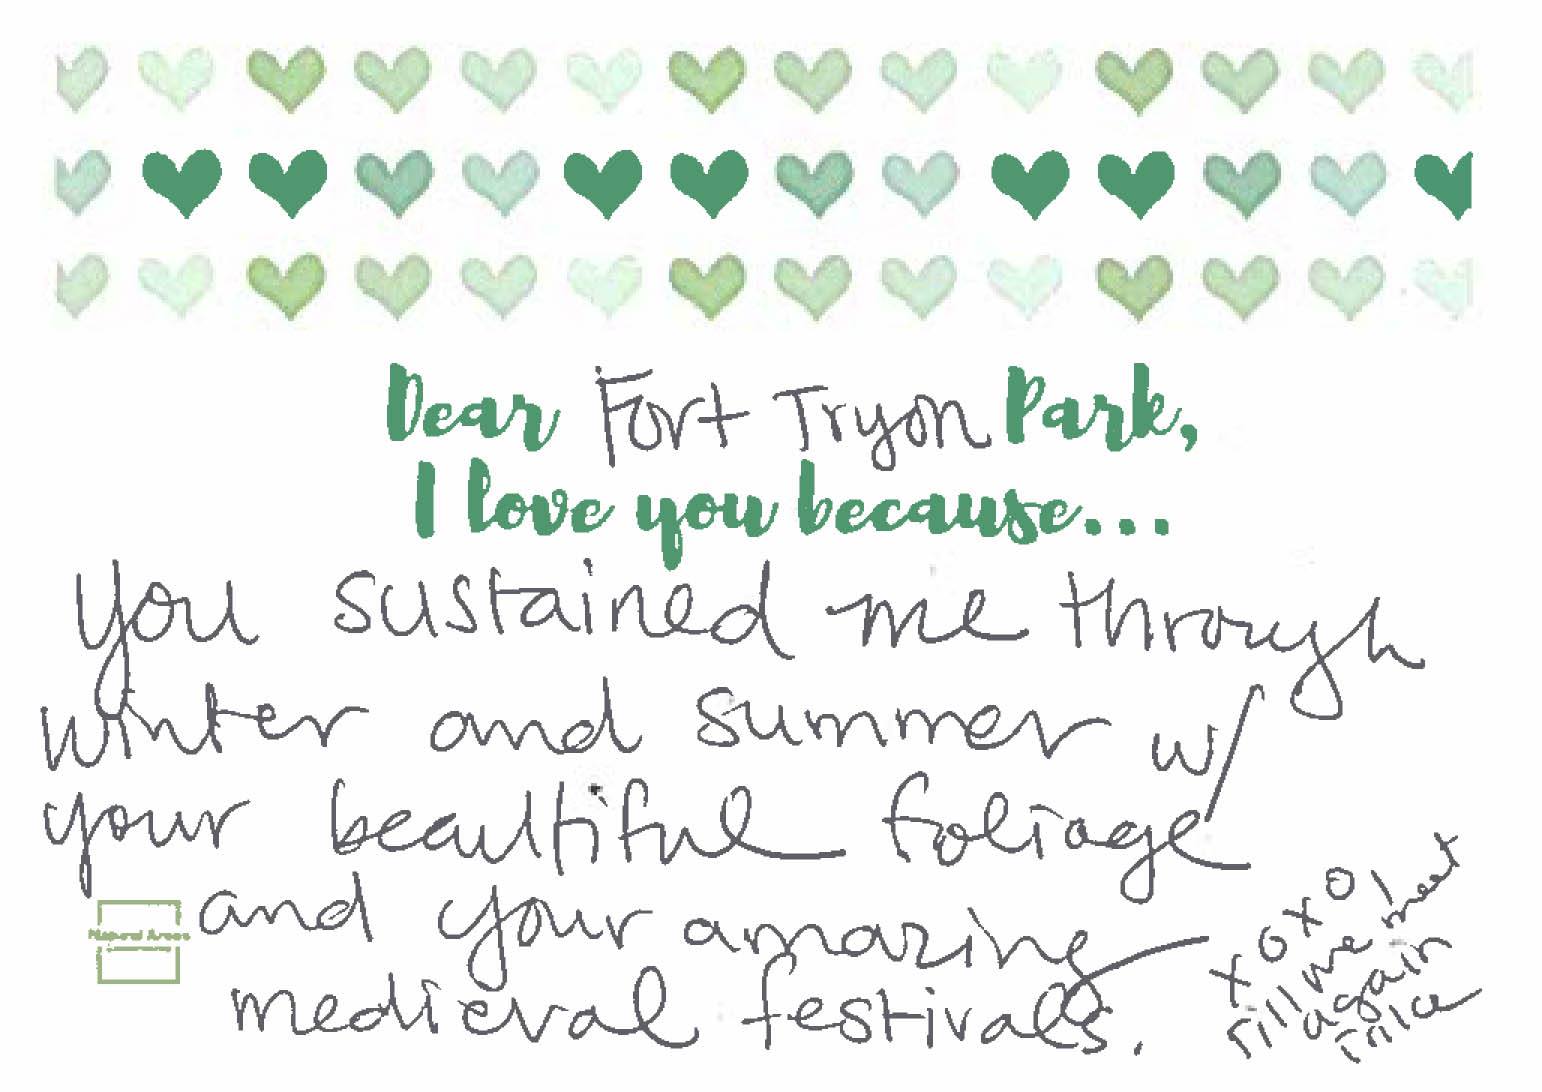 Dear Fort Tryon Park,
I love you because...
you sustained me through
winter and summer w/
your beautiful foliage
and your amazing
medieval festivals.
Natural Areas
xoxo!
till we meet
again